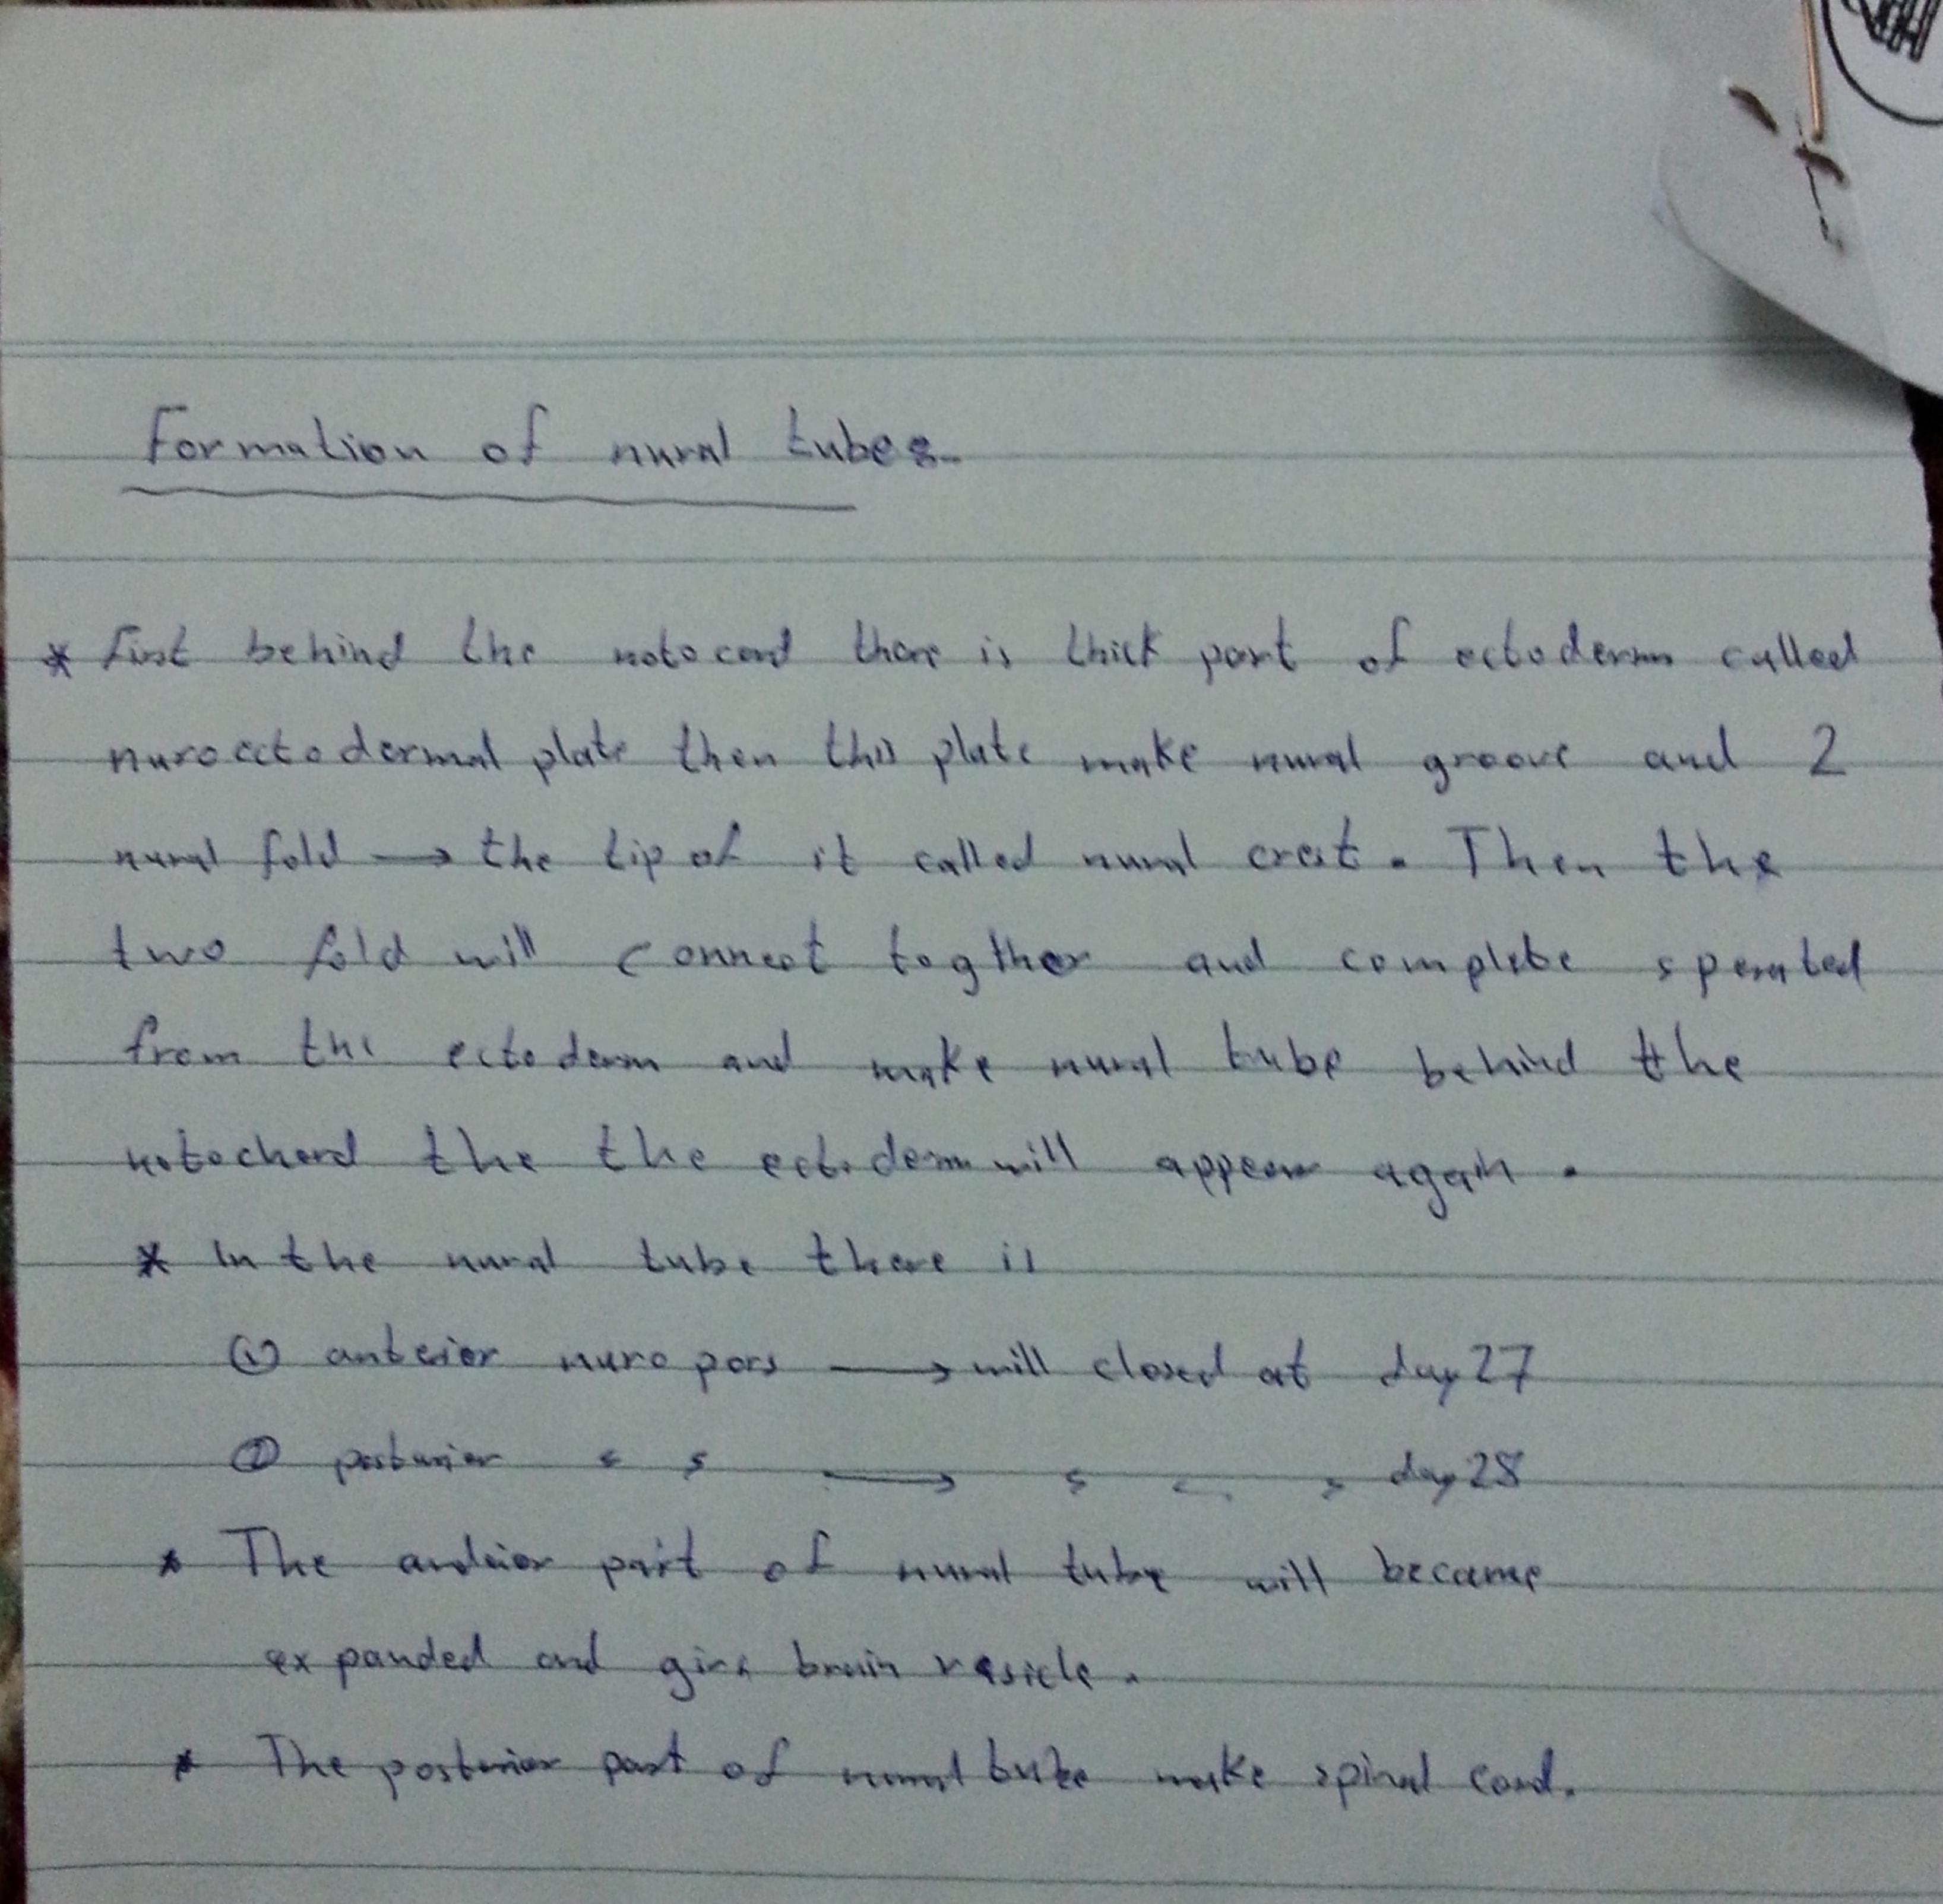 Formation of nural tube:-
* First behind the notocord there is thick part of ectoderm called
nuroectodermal plate then this plate make nural groove and 2
nural fold → the tip of it called nural crest. Then the
two fold will connect togther and complete sperated
from the ectoderm and make nural tube behind the
notochord the the ectoderm will appear again.
* In the nural tube there is
① anterior nuro pors → will closed at day 27
② posterior 〃 〃 → 〃 〃 〃 day 28
* The anterior part of nural tube will became
expanded and give brain vesicle.
* The posterior part of nural tube make spinal cord.